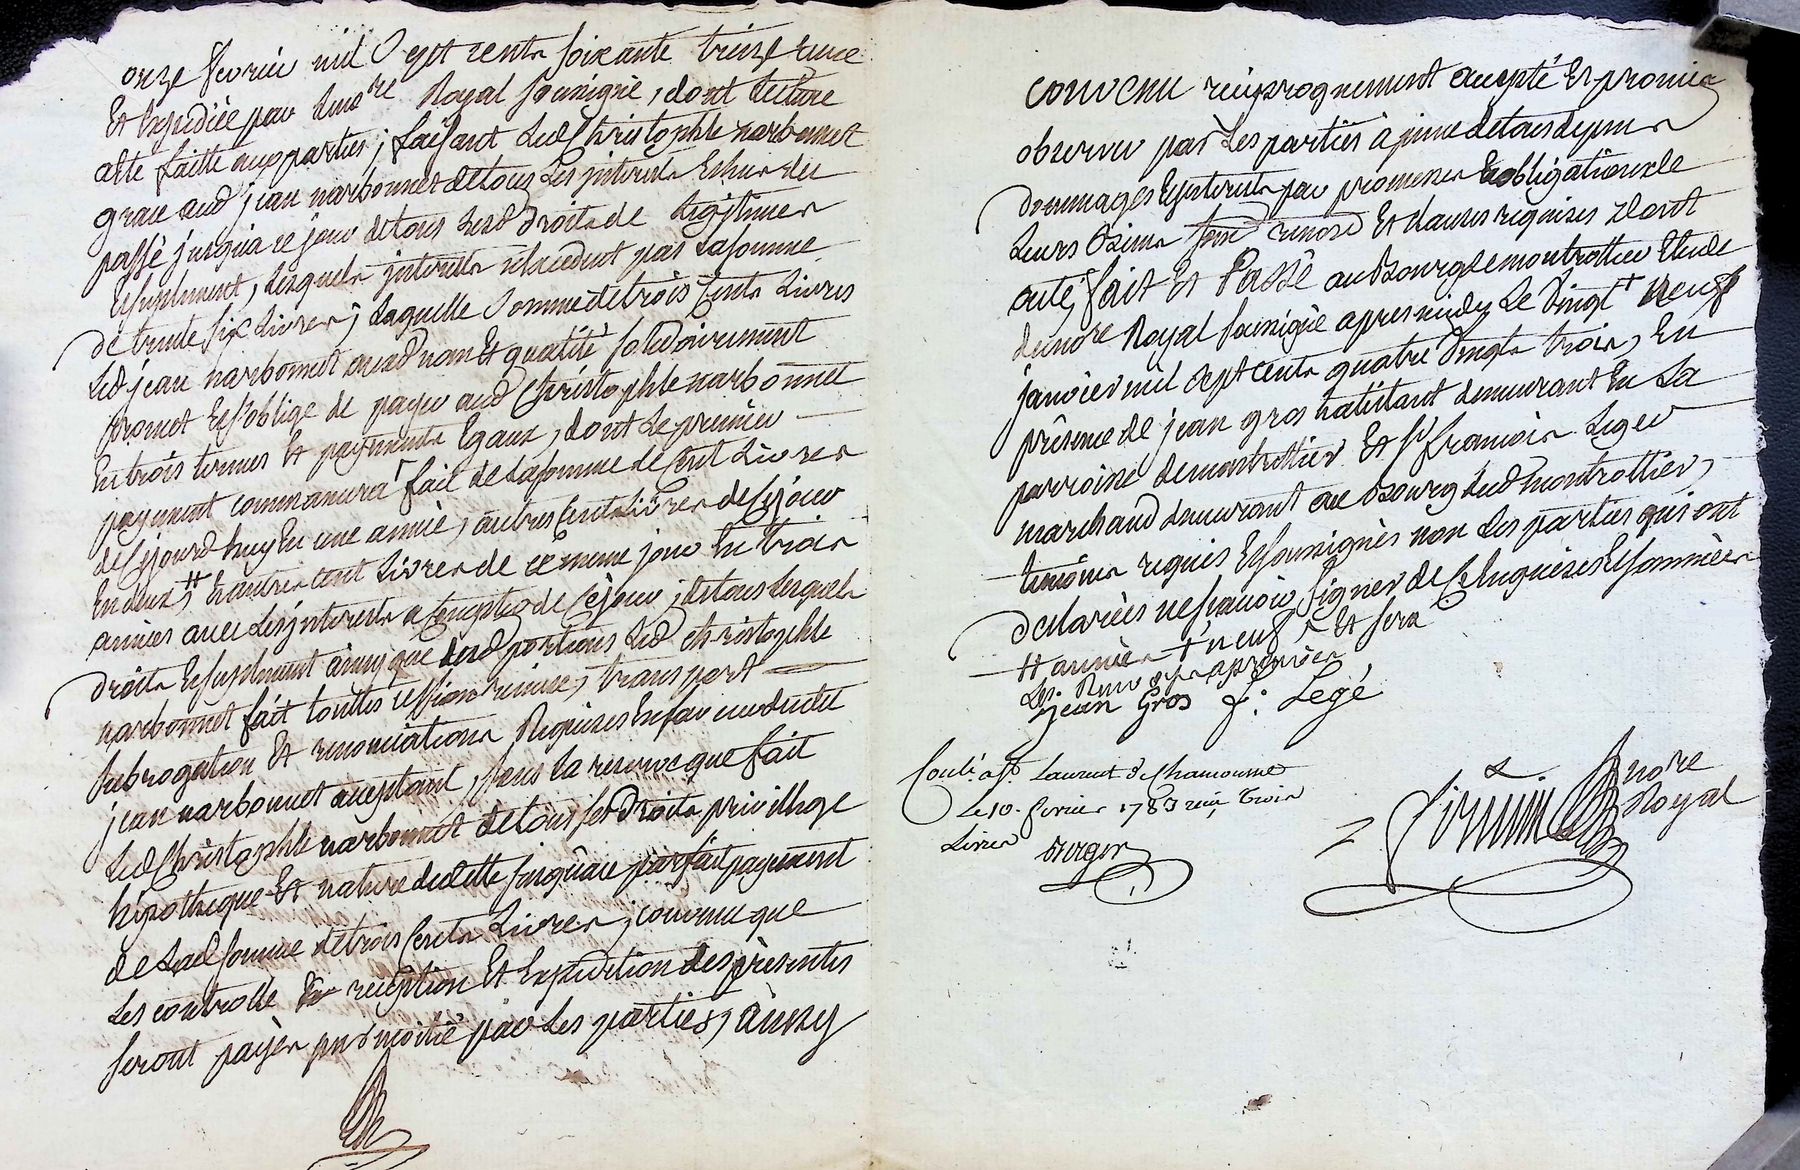 onze fevrier mil sept cents soixante treize recue
Et Expediée par Le no.re Royal soussigné, dont lecture
a été faitte aux parties; faisant Led Christophle narbonnet
grace aud jean narbonnet de tous Les interets Echus du
passé jusqu'a ce jour de tous sesd droits de Legitimes
Et suplement, lesquels interets n'excedent pas La somme
de trente six Livres; Laquelle somme de trois Cents Livres
Led jean narbonnet aud nom Et qualité solidairement
promet Et s'oblige de payer aud Christophle narbonnet
En trois termes Et payments Egaux, dont Le premier
payment commancera et fait de La somme de Cent Livres
de Cejourd'huy En une année, autres Cents Livres de Cejour
En deux, # Et autres cent Livres de ce meme jour En trois
années avec Les interets a Compter de Cejour; de tous Lesquels
droits Et suplement ainsy que desd portions Led christophle
narbonnet fait touttes cession remise, transport
subrogation Et renonciations Requises En faveur dudit
jean narbonnet acceptant, sous la reserve que fait
Led Christophle narbonnet de tous ses droits privillege
hipotheque Et nature de dette jusqu'au parfait payement
de Lad somme de trois Cents Livres; convenu que
Les controlle reception Et Expedition des presentes
seront payés par moitié par Les parties, ainsy
convenu reciproquement accepté Et promis
observer par Les parties a peine de tous depens
dommages Et interets par promesses Et obligations de
Leurs Biens renond Et clauses requises Dont
acte, fait Et Passé au Bourg de montrottier Etude
du no.re Royal soussigné apres midy Le Vingt + neuf
janvier mil sept cents quatre Vingts trois, En
presence de jean gros habitant demeurant En La
parroisse de montrottier Et sr francois Leger
marchand demeurant au Bourg dud montrottier,
temoins requis Et soussignés non Les parties qui ont
declarées ne scavoir signer de Ce Enquises Et sommées
# années + neuf Et sera
Les Renvoys approuvés
jean Gros f. Legé
Conlé. a St. Laurent de Chamousset
Le 10. fevrier 1783 reçu trois
Livres
Berger
no.re
Royal